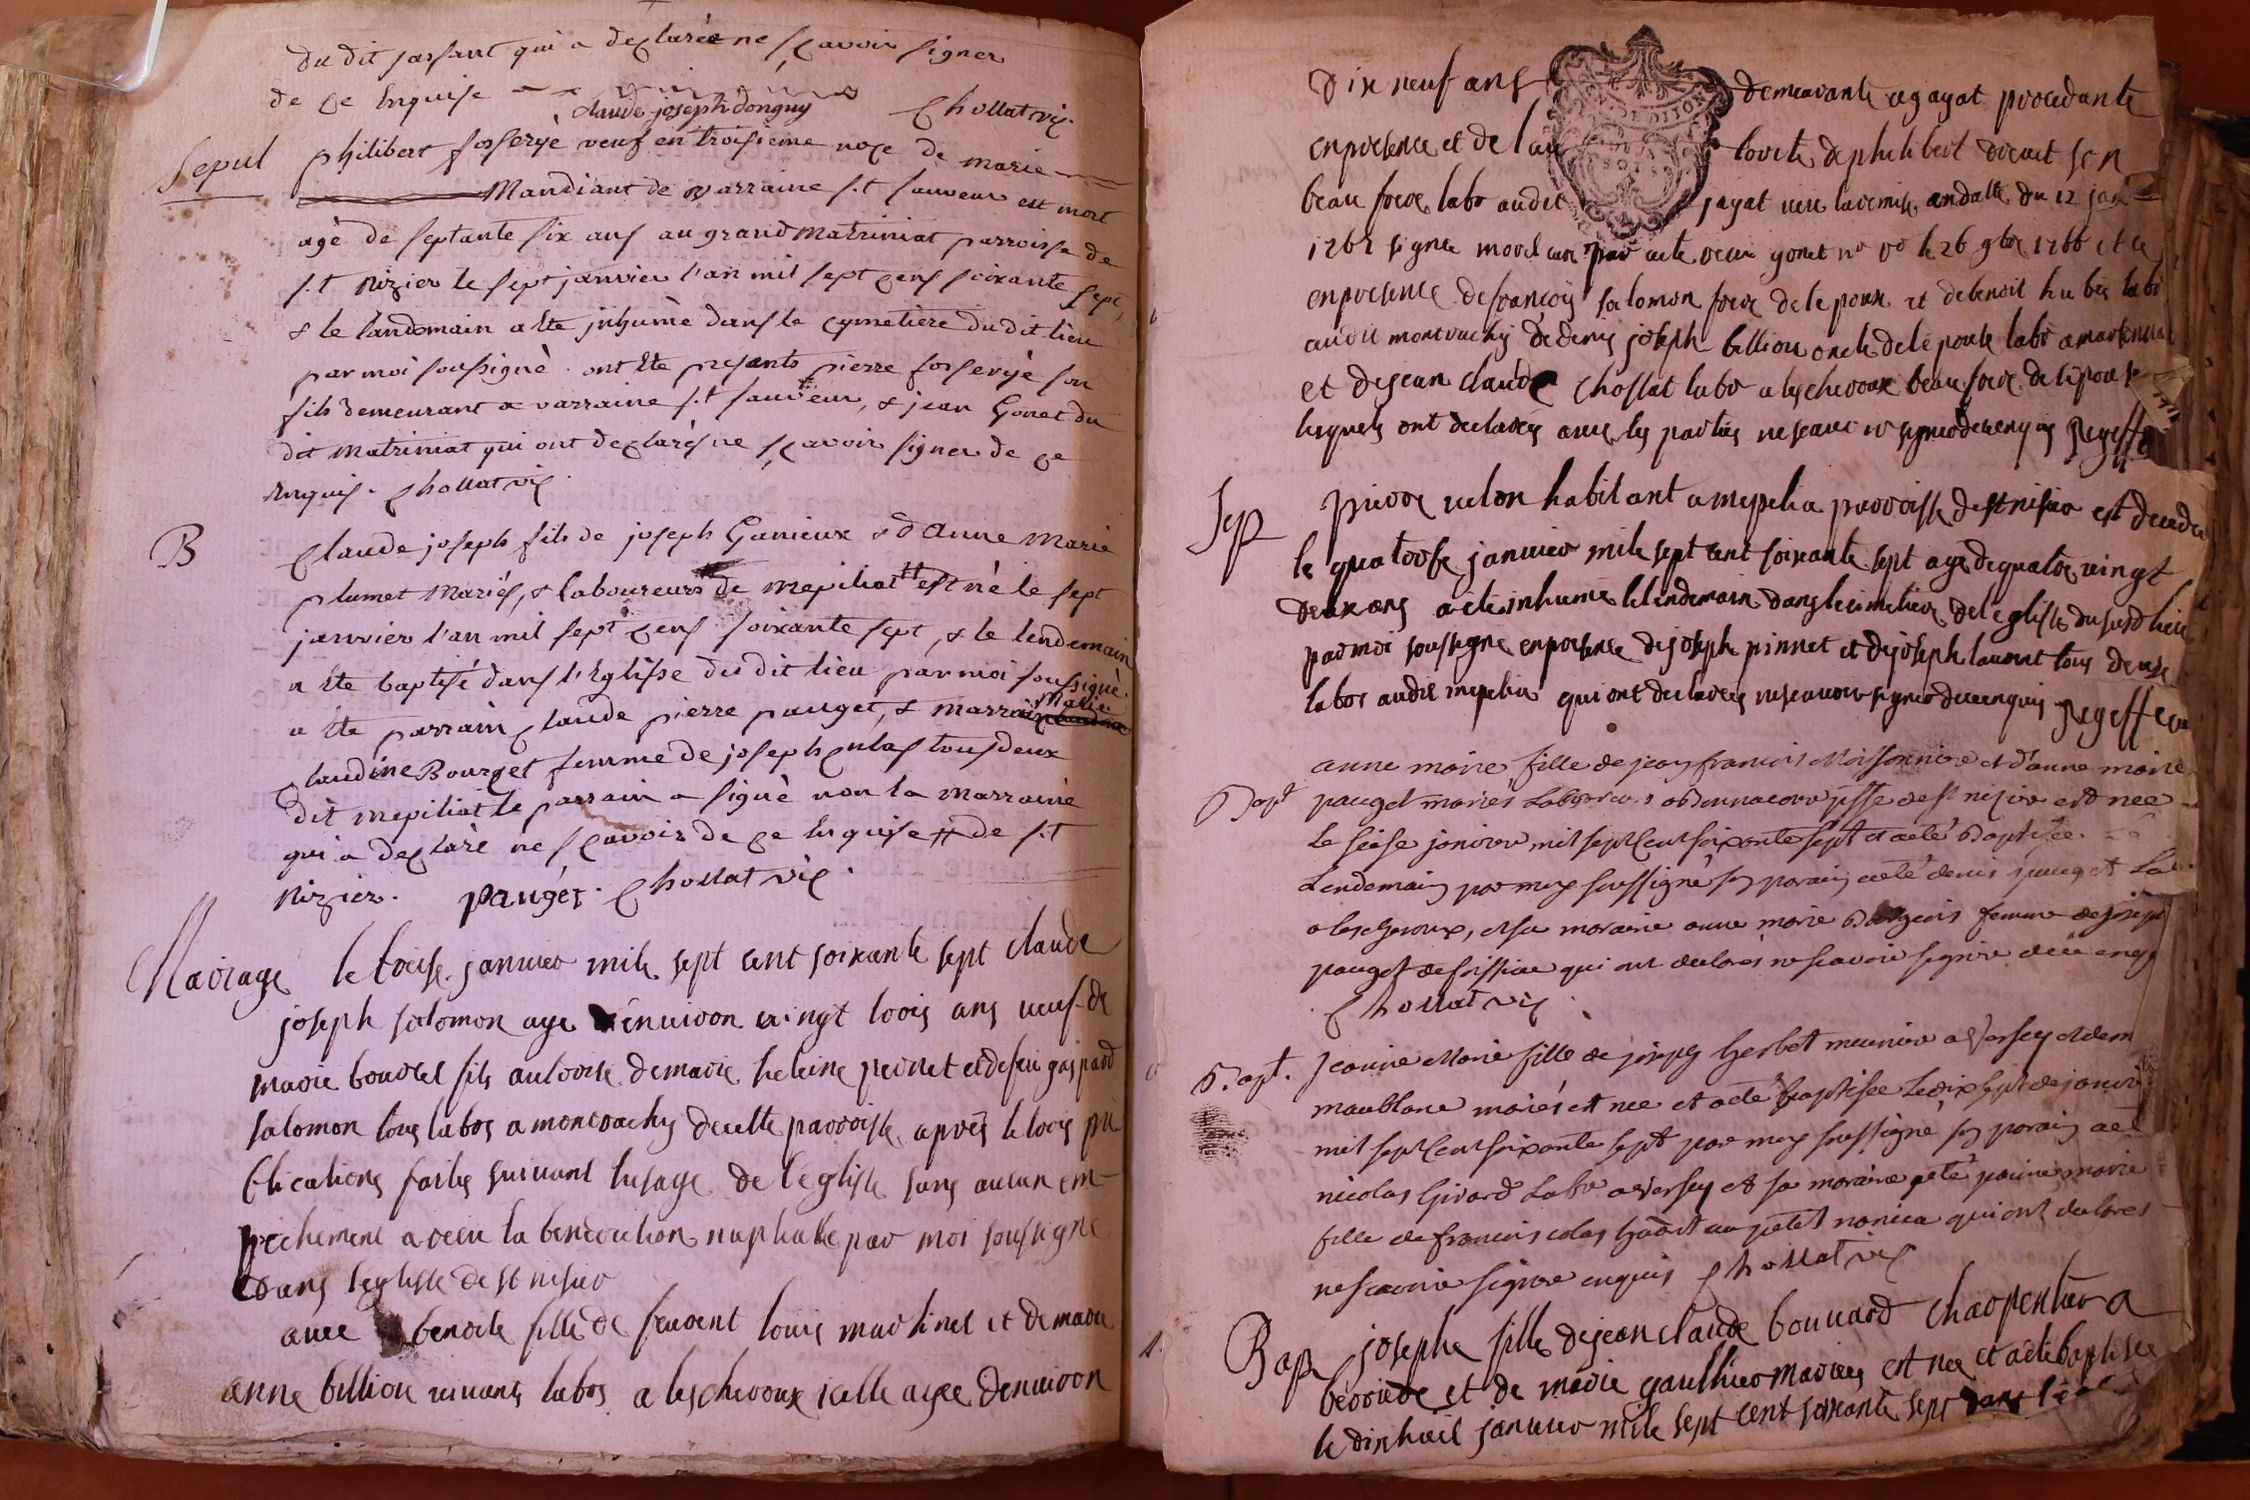 du dit passant qui a declarée ne sçavoir signer
de ce Enquise claude joseph donguy Chollat vic.
Sepul philibert forserye veuf en troisieme noce de marie
Mandiant de varraine s.t sauveur est mort
agé de septante six ans au grand Matriniat parroisse de
s.t Nizier le sept janvier l'an mil sept cens soixante sept,
& le landemain a Ete inhumè dans le cymetiere du dit lieu
par moi soussignè. ont Ete presants pierre forseryè son
fils demeurant a varraine s.t sauveur, & jean Gonet du
dit Matriniat qui ont declarés ne sçavoir signer de ce
Enquis. Chollat vic.
B Claude joseph fils de joseph Ganieux & d'Anne Marie
plumet Mariés, & laboureurs de Mepiliat # est nè le sept
janvier l'an mil sept cens soixante sept, & le lendemain
a Ete baptisé dans l'Eglise du dit lieu par moi soussignè.
a Ete parrain Claude pierre pauget, & marraine Marie
Claudine Bourget femme de joseph tous deux
dit mepiliat le parrain a signè non la marraine
qui a declarè ne sçavoir de ce Enquise # de s.t
Nizier. pauget. Chollat vic.
Mariage le treise janvier mile sept cent soixante sept claude
joseph salomon age d'environ vingt trois ans veuf de
marie bourel fils autorise de marie heleine peinet et de feu gaspard
salomon tous labos a moncrachy de cette parroisse apres le trois pu
blications faites suivant lusage de l'eglise sans aucun em-
pechement a receu la benediction nuptialle par moi soussigne
dans l'eglise de st nisier
avec benoite fille de feuvent louis martinet et de marie
anne billion vivants labos a leschevoux icelle agee denviron
dix neuf ans demeurante a gayat procedante
en presence et de lau torite de philibert son
beau frere labr audit jayat veu la remise en datte du 12 janr
176 signee morel cure par acte receu gonet nre le 26 9bre 1766 et ce
en presence de francois salomon frere de lepoux et de benoit labr
audit moncrachy de denis joseph billion oncle de lepouse labr a
et de jean claude Chossat labr a leschevoux beau frere de lepouse
lesquels ont declarés avec les parties ne scavoir signer de ce enquis Regeffe
Sep Pierre velon habitant a mepelia parroisse de st nisier est decede
le quatorse janvier mile sept cent soixante sept age de quatre vingt
deux ans a ete inhumé le lendemain dans le cimetiere de l'eglise du susd lieu
par moi soussigne en presence de joseph pinnet et de joseph laurent tous deux
labos audit mepelia qui ont declarés ne scavoir signer de ce enquis Regeffe cu
anne marie fille de jean francois Moissonnier et d'anne marie
Bapt pauget mariés Laboureurs a psse de st nisier est nee
Le seise janvier mil sept cent soixante sept et a eté Baptisée Le
Lendemain par moy soussigné son parain a eté denis pauget La
a leschevoux, et sa maraine anne marie Bourgeois femme de joseph
pauget de foissiat qui ont declarés ne scavoir signer de ce enq
Chollat vic.
Bapt. Jeanne Marie fille de joseph herbet meunier a Versey et de m
maublanc mariés est nee et a eté Baptisée Le dix sept de janvier
mil sept cent soixante sept par moy soussigné son parain a eté
nicolas Girard Labr a Versey et sa maraine a eté jeanne marie
fille de francois colas habit au petit noniea qui ont declarés
ne scavoir signer enquis Chollat vic
Bap josephe fille de jean claude bouvard charpentier a
beorriede et de marie gauthier mariés est nee et a ete baptisee
le dix huit janvier mile sept cent soixante sept dans